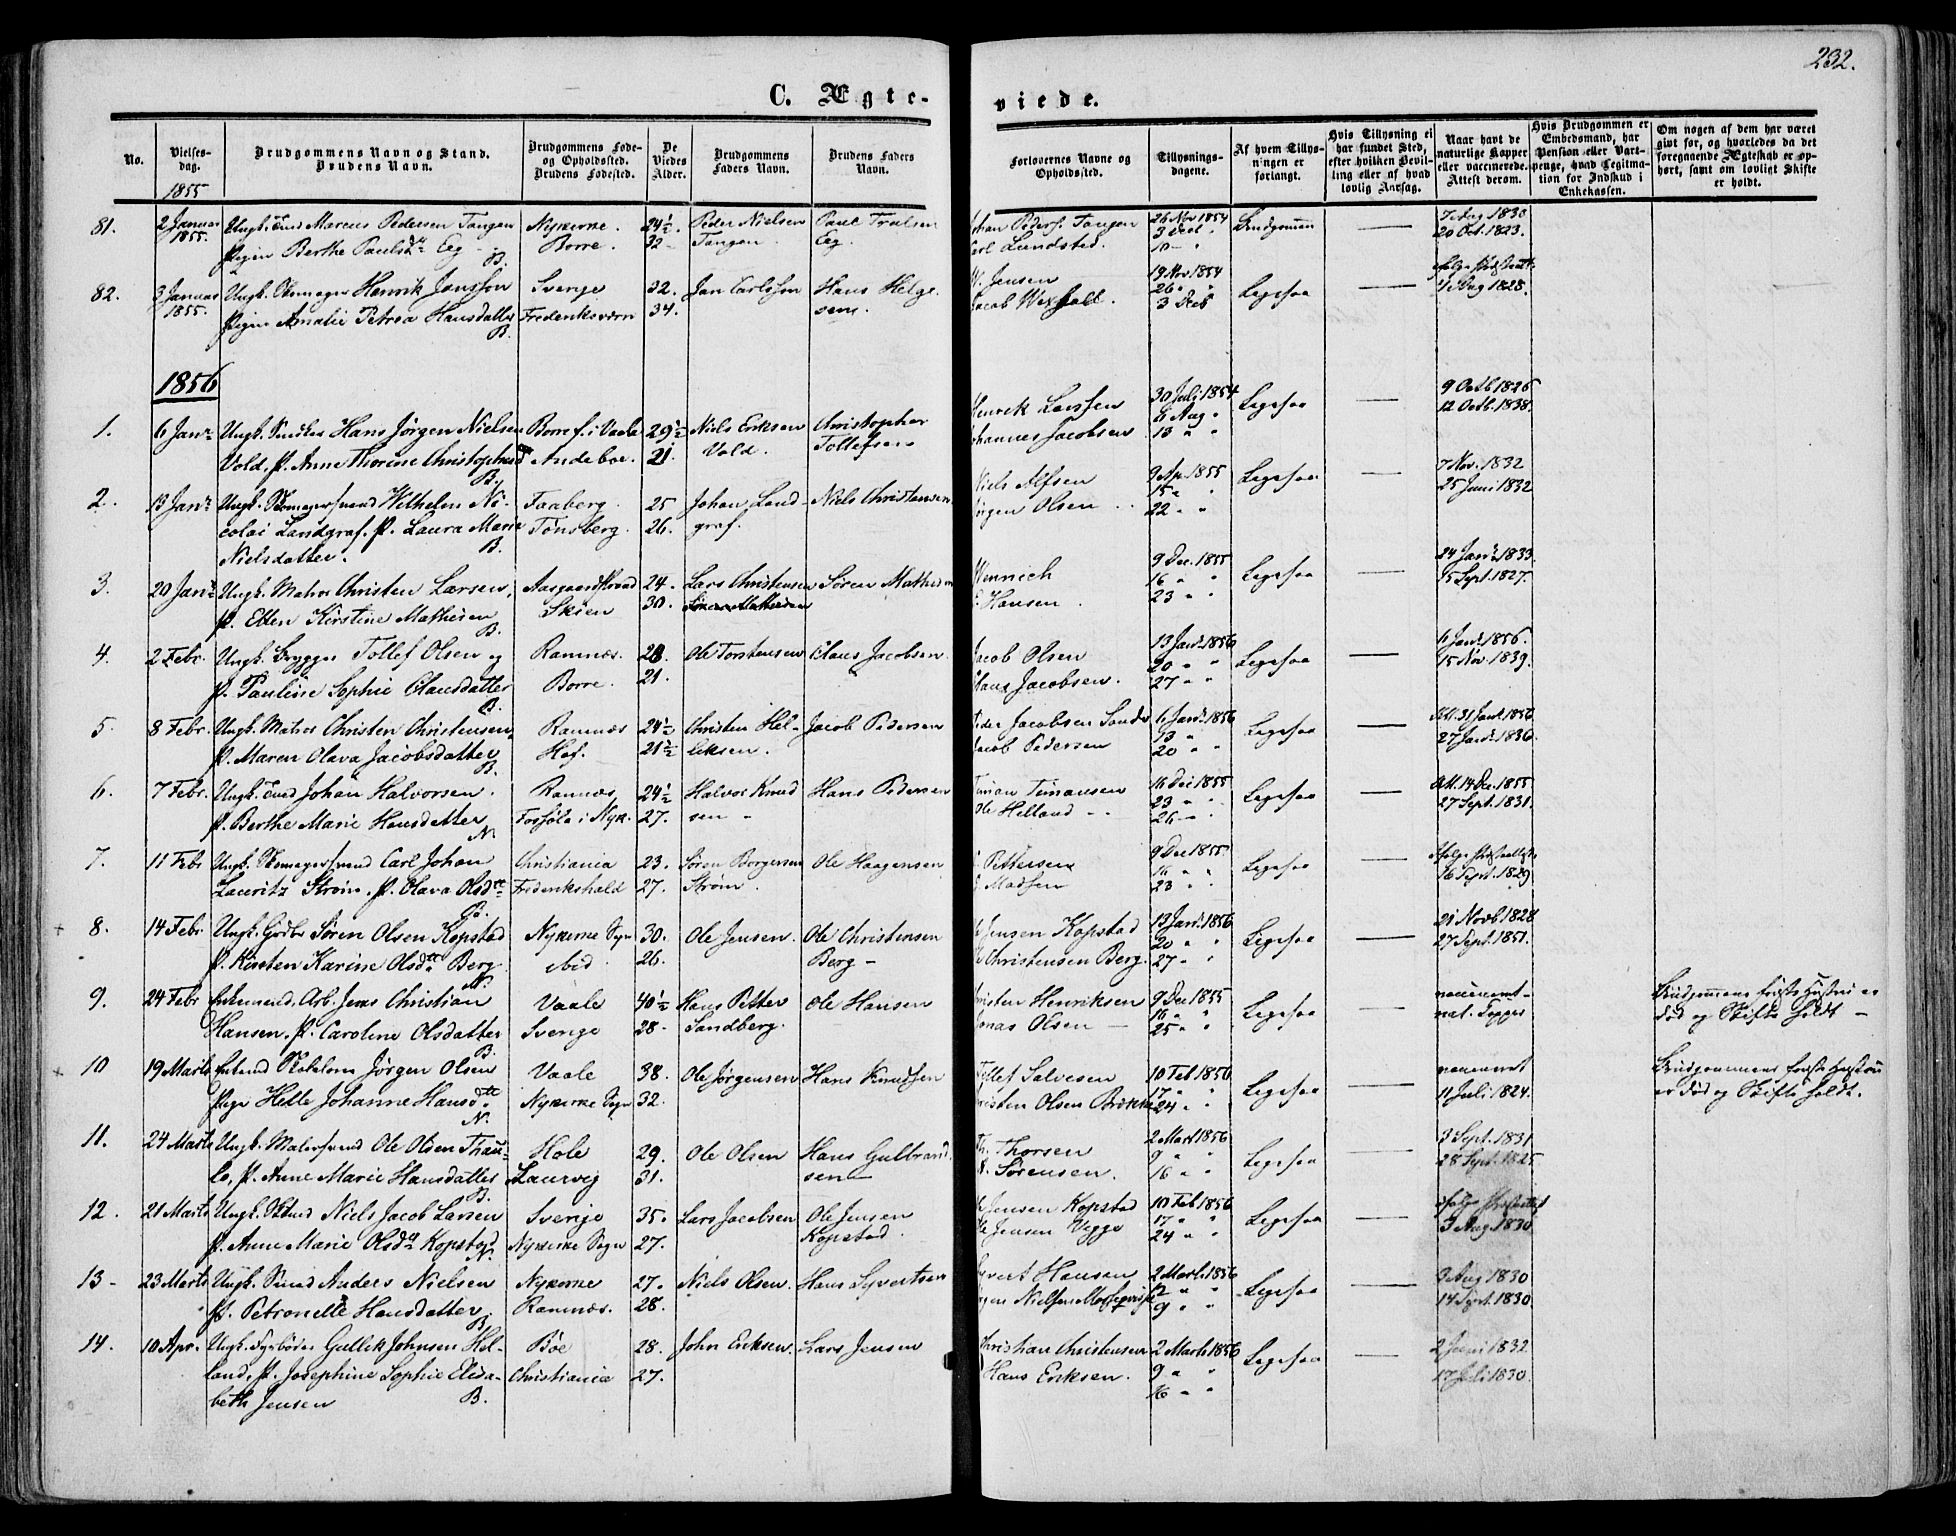 232.
C. Ægte-
viede.
No.
Vielses-
dag.
Brudgommens Navn og Stand.
Brudens Navn.
Brudgommens Føde-
og Opholdsted.
Brudens Fødested.
De
Viedes
Alder.
Brudgommens
Faders Navn.
Brudens Faders
Navn.
Forlovernes Navne og
Opholdsted.
Tillysnings-
dagene.
Af hvem Tillys-
ningen er
forlangt.
Hvis Tillysning ei
har fundet Sted,
efter hvilken Bevil-
ling eller af hvad
lovlig Aarsag.
Naar havt de
naturlige Kopper
eller vaccinerede.
Attest derom.
Hvis Brudgommen er
Embedsmand, har
Pension eller Vart-
penge, hvad Legitima-
tion for Indskud i
Enkekassen.
Om nogen af dem har været
gift før, og hvorledes da det
foregaaende Ægteskab er op-
hørt, samt om lovligt Skifte
er holdt.
1855
81. 2 Januar Ungk. Marcus Pedersen Tangen Nykirke. 24½. Peder Nielsen Paul Pedersf. Tangen 26 Nov 1854 Brudgommen — 7 Aug 1830
1855. Pigen Berthe Paulsd. Eeg B. Borre. 32 Tangen. Eeg. Carl Lundsted. 3 Dec 20 Oct. 1823.
10
82. 3 Januar Ungk. Skomager Henrik Jansson Sverige 32. Jan Carlsson Hans Helge- W. Jensen 19 Nov 1854 Ligesaa —
1855. Pigen Amalie Petrea Hansdatter Frederiksværn 34. sen. Jacob Wexhall. 26 1828.
B. 3 Dec
1856
1. 6 Jan. Ungk. Snedker Hans Jørgen Nielsen Borre f. i Vaale 29½ Niels Eriksen Christopher Henrik Larsen 30 Juli 1854 Ligesaa 9 Octb 1826
Vold, P. Anne Thorine Christophersd Andeboe. 21. Vold. Tollefsen Johannes Jacobsen 6 Aug 12 Octb. 1838.
B. 13 " "
2. 13 Jan. Ungk. Skomagersvend Wilhelm Ni- Faaberg. 25 Johan Land- Niels Christensen Niels Alfsen 9 Ap. 1855 Ligesaa — 7 Nov. 1832
colai Landgraf. P. Laura Marie Tønsberg. 26. graf. Jørgen Olsen 15 " 25 Juni 1832
Nielsdatter. B. 22 " "
3. 20 Jan. Ungk. Matros Christen Larsen, Aasgaardstrand 24. Lars Christensen Søren Mathisen Wennich 9 Dec. 1855 Ligesaa — 24 Jan. 1833
P. Ellen Kirstine Mathisen Skien 30. Søren Mathisen Hansen. 16 " " 15 Sept. 1827.
B. 23 " "
4. 2 Febr. Ungk. Brygger Tollef Olsen og Ramnæs. 28. Ole Torstensen Claus Jacobsen. Jacob Olsen 13 Jan. 1856 Ligesaa — Jan. 1856.
P. Pauline Sophie Clausdatter Borre. 21. Claus Jacobsen. 20 " " 15 Nov. 1839.
B. 27 " "
5. 8 Febr. Ungk. Matros Christen Christensen, Ramnæs 24½ Christen Hel- Jacob Pedersen Peder Jacobsen Sande 6 Jan. 1856 Ligesaa — Att. 31 Jan. 1856.
P. Maren Olava Jacobsdatter Hof. 21½ liksen. Jacob Pedersen 13 " 27 Jan. 1836.
B. 20 " "
6. 7 Febr. Ungk. Johan Halvorsen. Ramnæs 24½ Halvor Knud- Hans Pedersen Timan Timansen 16 Dec 1855 Ligesaa — Att. 14 Dec. 1855
P. Berthe Marie Hansdatter i Nyk. 27. sen Ole Helland 23 " " 27 Sept. 1831.
N. 26 "
7. 11 Febr Ungk. Skomagersvend Carl Johan Christiania 23. Søren Borgersen Ole Haagensen Pettersen 9 Dec 1855 Ligesaa —
Lauritz Strøm. P. Olava Olsd. Frederikshald 27. Strøm. Madsen 16 " " 16 Sept. 1829
B. 23 " "
+ 8. 14 Febr. Ungk. Gdbr Søren Olsen Kopstad Nykirke Sogn 30. Ole Jensen. Ole Christensen Jensen Kopstad 13 Jan. 1856 Ligesaa — 21 Novb 1828
P. Kirsten Karine Olsd. Berg ibid 26. Berg Christensen Berg. 20 " " 27 Sept. 1851.
N. 27 " "
9. 24 Febr Enkemand, Arb. Jens Christian Vaale 40½ Hans Petter Ole Hansen Christen Henriksen 9 Dec 1855 Ligesaa — vaccineret Brudgommens første Hustru er
Hansen. P. Caroline Olsdatter Sverige 28. Sandberg. Jonas Olsen 16 " " nat. Kopper død og Skifte holdt —
B. 25 "
+ 10 19 Marts Jørgen Olsen Vaale 38. Ole Jørgensen Hans Knudsen Tollef Salvesen 10 Feb 1856 Ligesaa — vaccineret Brudgommens første Hustru
Pige Helle Johanne Hansd. Nykirke Sogn 32. Christen Olsen Brekke 17 " " 11 Juli 1824. er død og Skifte holdt.
N. 24 "
11. 24 Marts Ungk. Malersvend Ole Olsen Thau- Hole 29. Ole Olsen Hans Gulbrand- Th. Thorsen 2 Mart 1856 Ligesaa — 3 Sept. 1831
lo, P. Anne Marie Hansdatter Laurvig 31. sen Sørensen. 9 " " 28 Sept. 1825
B. 16 " "
12. 21 Marts Ungk. Niels Jacob Larsen Sverige 35. Lars Jacobsen Ole Jensen Jensen Kopstad 10 Feb 1856 Ligesaa —
P. Anne Marie Olsd. Kopstad Nykirke Sogn 27. Kopstad. Ole Jensen Vegge 17 " " 3 Aug. 1830
N. 24 " "
13 - 23 Marts Ungk. Smed Anders Nielsen Nykirke 27. Niels Olsen. Hans Syvertsen Syvert Hansen 2 Mart. 1856 Ligesaa — 3 Aug 1830
P. Petronelle Hansdatter. Ramnæs. 28. Nielsen 14 Sept. 1830.
B. 9 " "
14. 10 Apr. Ungk. Gullik Johnsen Hel- Bøe 28. John Eriksen. Lars Jensen Christian Christensen 2 Marts 1856 Ligesaa — 2 Juni 1832
land, P. Josephine Sophie Elisa- Christiania 27. Hans Eriksen. 9 " " 17 Juli 1830.
beth Jensen B. 16 " "